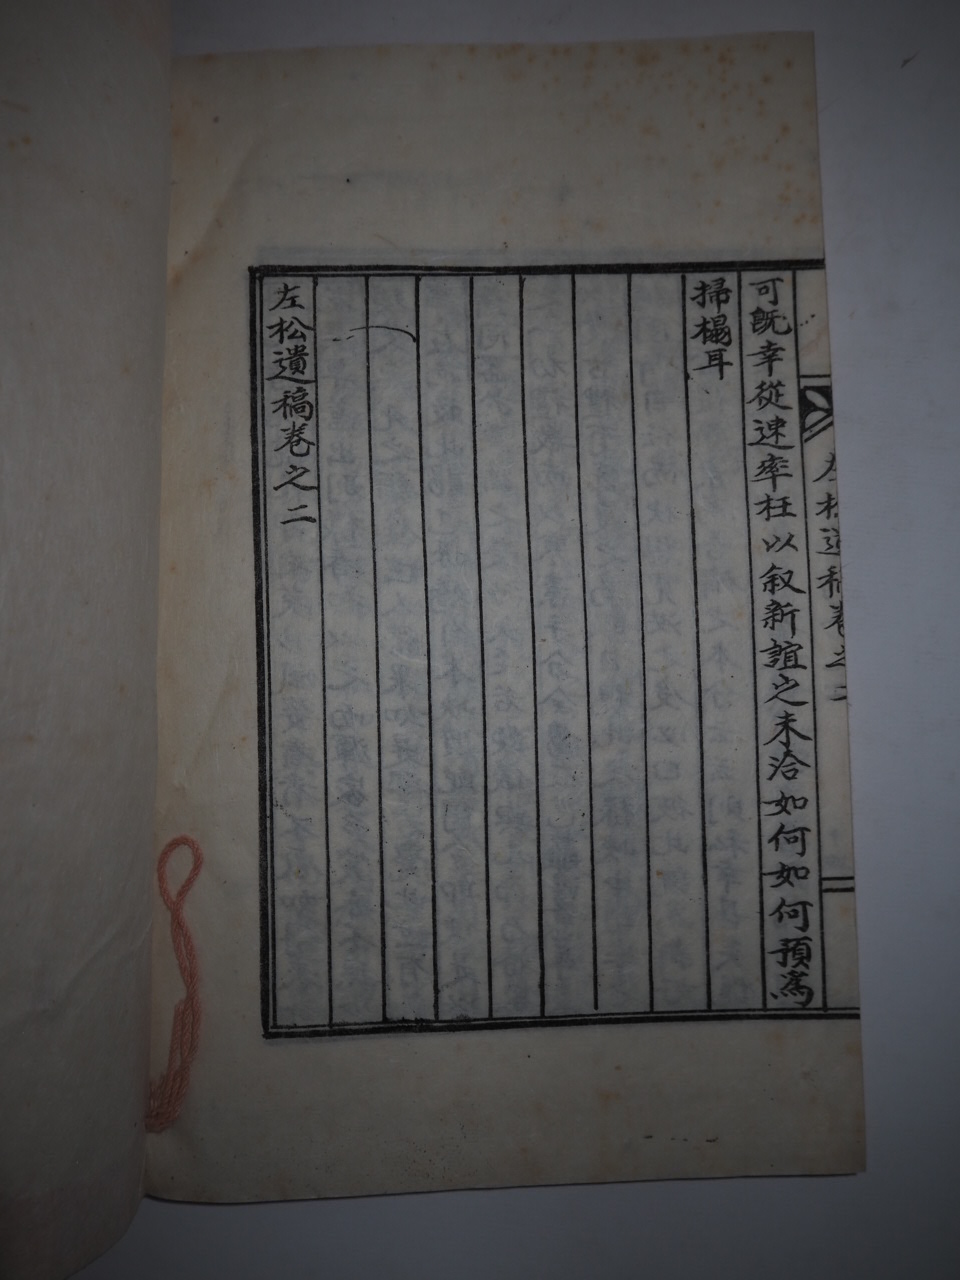 左松遺稿卷之二
可旣幸從速率枉以叙新誼之未洽如何如何預爲
掃榻耳
左松遺稿卷之二